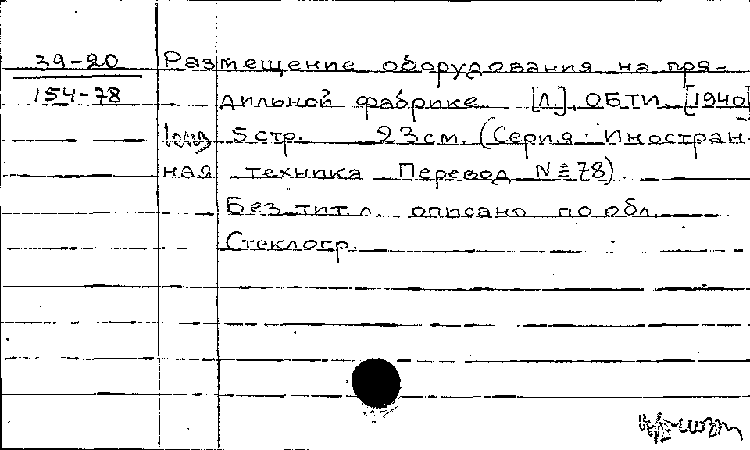 39-20 Размещение оборудования на пря-
154-78 дильной фабрике [Л], ОБТИ [1940]
1экз 5 стр. 23 см. (Серия: Иностран-
ная техника Перевод № 78)
Без тит л. описано по обл.
Стеклогр.